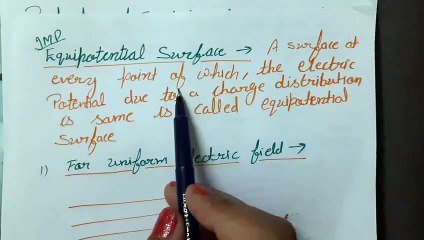 IMP
Equipotential Surface → A surface at
every point of which, the electric
Potential due to a charge distribution
is same is called equipotential
Surface
1) For uniform electric field →